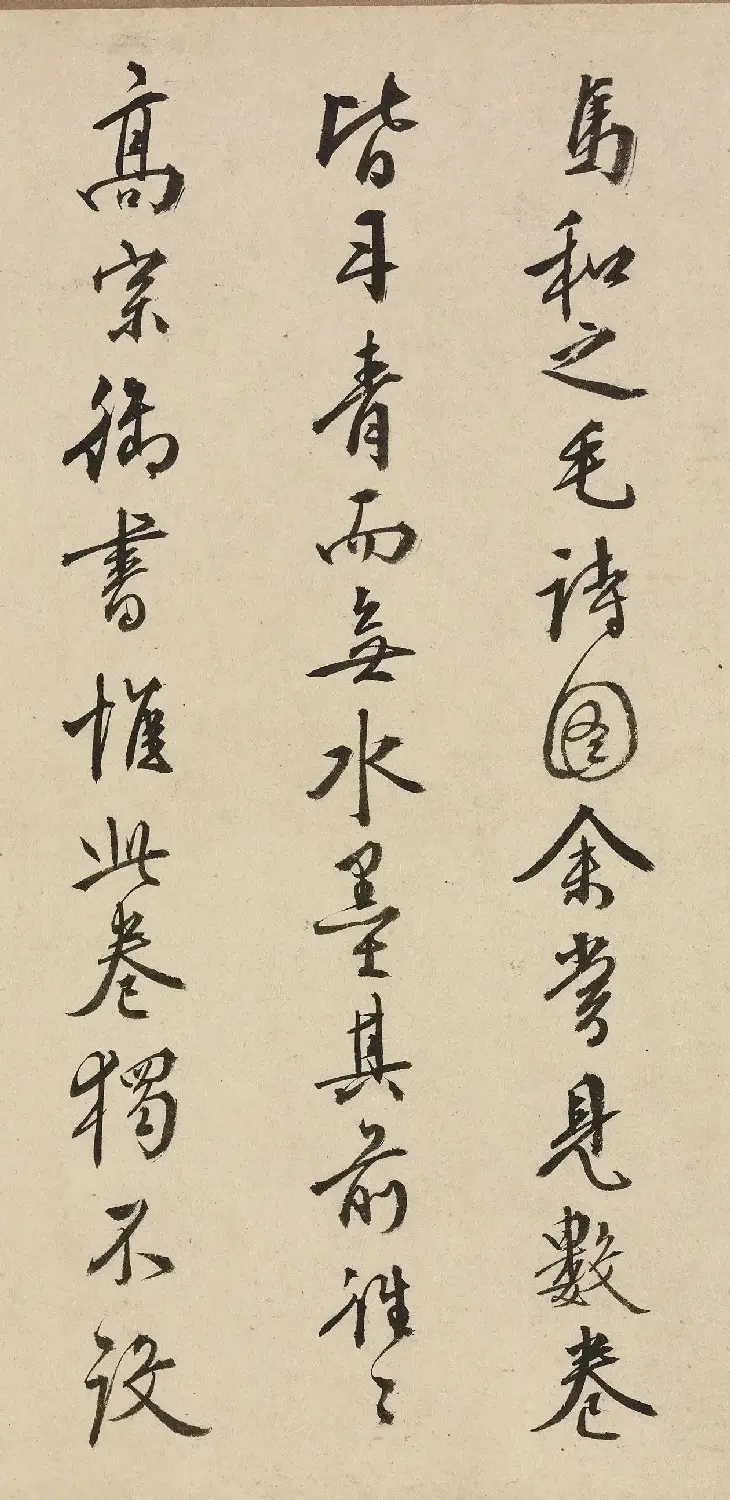 馬和之毛詩圖余嘗見數卷
皆丹青而無水墨其前往々
高宗御書惟此卷獨不設